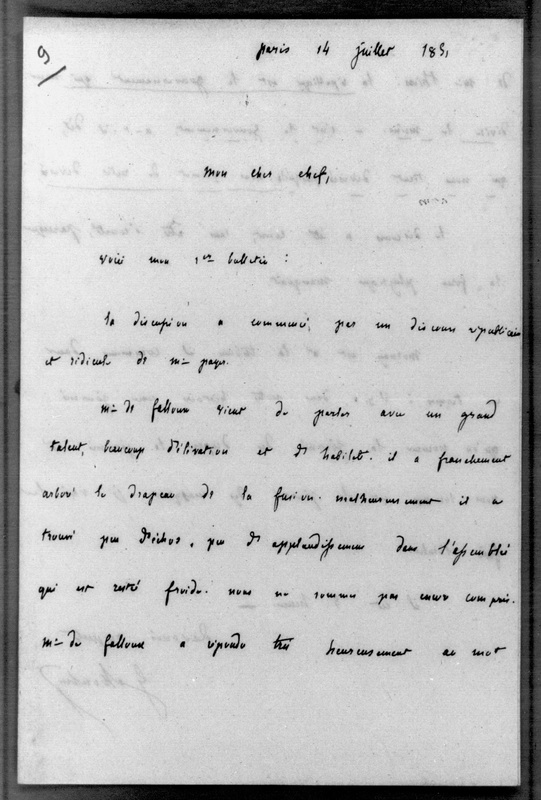 9
Paris 14 juillet 1851
Mon cher chef,
Voici mon 1er bulletin :
La discussion a commencé, par un discours républicain
et ridicule de Mr payer.
Mr de falloux vient de parler avec un grand
talent, beaucoup d'élévation et d'habileté. il a franchement
arboré le drapeau de la fusion. malheureusement il a
trouvé peu d'échos, peu d'applaudissemens dans l'assemblée
qui est restée froide. nous ne sommes pas encore compris.
Mr de falloux a répondu très heureusement au mot